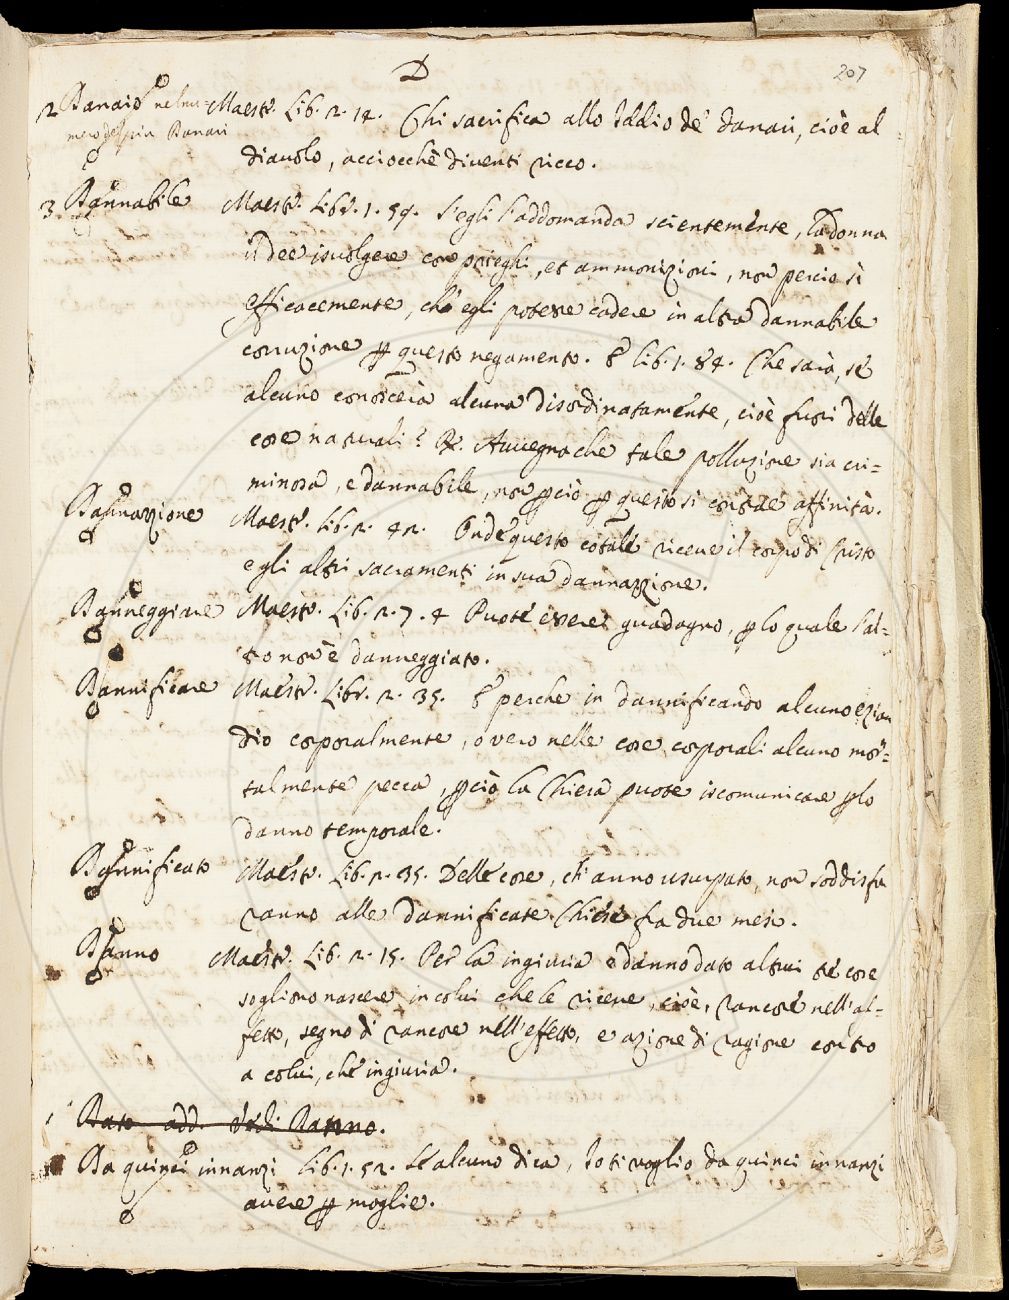 D
207
2 Danaio nel nu= Maestr. Lib. 2. 14. Chi sacrifica allo Iddio de' danari, cioè al
mero del più Danari
diavolo, acciocchè diventi ricco.
3 Dannabile Maestr. Libr. 1. 59. S'egli l'addomanda scientemente, la donna
il dee isvolgere con prieghi, et ammonizioni, non perciò sì
efficacemente, che egli potesse cadere in altra dannabile
corruzione ꝑ questo negamento. E lib. 1. 84. Che sarà, se
alcuno conoscerà alcuna disordinatamente, cioè fuori delle
cose naturali? R. Avvegnache tale polluzione sia cri=
minosa, e dannabile, non ꝑciò ꝑ questo si contrae affinità.
Dannazione Maestr. Lib. 2. 42. Onde questo cotale riceve il corpo di Cristo
e gli altri sacramenti in sua dannazione.
Danneggiare Maestr. Lib. 2. 7. 4 Puote essere guadagno, ꝑ lo quale l'al=
tro non è danneggiato.
Dannificare Maestr. Libr. 2. 35. E perche in dannificando alcuno ezian
dio corporalmente, overo nelle cose corporali alcuno mor=
talmente pecca, ꝑciò la Chiesa puote iscomunicare ꝑ lo
danno temporale.
Dannificato Maestr. Lib. 2. 35. Delle cose, ch'anno usurpato, non soddisfa
ranno alle dannificate Chiese fra due mesi.
Danno Maestr. Lib. 2. 15. Per la ingiuria e danno dato altrui tre cose
sogliono nascere in colui che le riceve, cioè, rancore nell'af=
fetto, segno di rancore nell'effetto, e azione di ragione contro
a colui, che ingiuria.
1 Dato add.
Da quinci innanzi Lib. 1. 52. Se alcuno dica, Io ti voglio da quinci innanzi
avere ꝑ moglie.